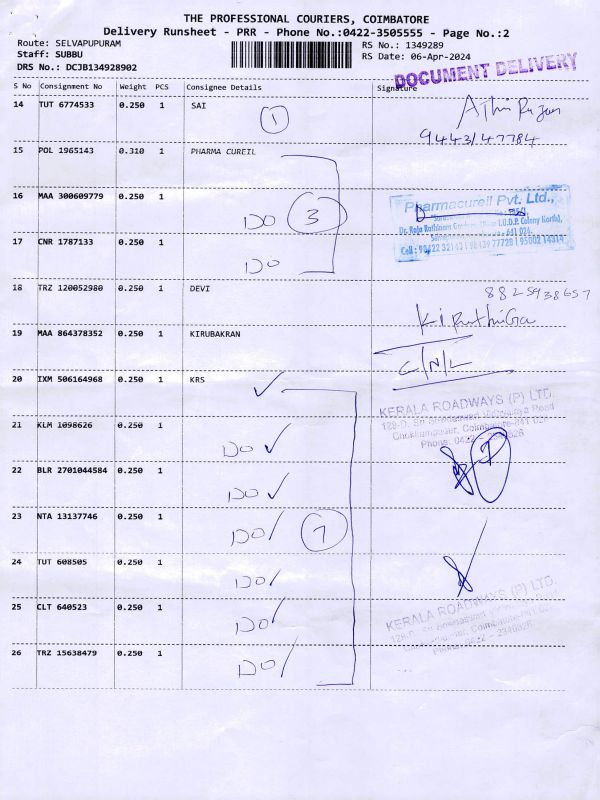 THE PROFESSIONAL COURIERS, COIMBATORE
Delivery Runsheet - PRR - Phone No.:0422-3505555 - Page No.:2
Route: SELVAPUPURAM RS No.: 1349289
Staff: SUBBU RS Date: 06-Apr-2024
DRS No.: DCJB134928902
DOCUMENT DELIVERY
S No Consignment No Weight PCS Consignee Details Signature
14 TUT 6774533 0.250 1 SAI
1
9443147784
15 POL 1965143 0.310 1 PHARMA CUREIL
16 MAA 300609779 0.250 1
DO 3
Pharmacureil Pvt. Ltd.,
17 CNR 1787133 0.250 1
DO
18 TRZ 120052980 0.250 1 DEVI
8825938657
KiRuthiGa
19 MAA 864378352 1 KIRUBAKRAN
C/N/L
20 IXM 506164968 0.250 1 KRS
KERALA ROADWAYS (P) LTD.
21 KLM 1098626 0.250 1
DO
22 BLR 2701044584 0.250 1
DO
7
23 NTA 13137746 0.250 1
DO 7
24 TUT 608505 0.250 1
DO
25 CLT 640523 0.250 1
DO
KERALA ROADWAYS (P) LTD.
26 TRZ 15638479 0.250 1
DO